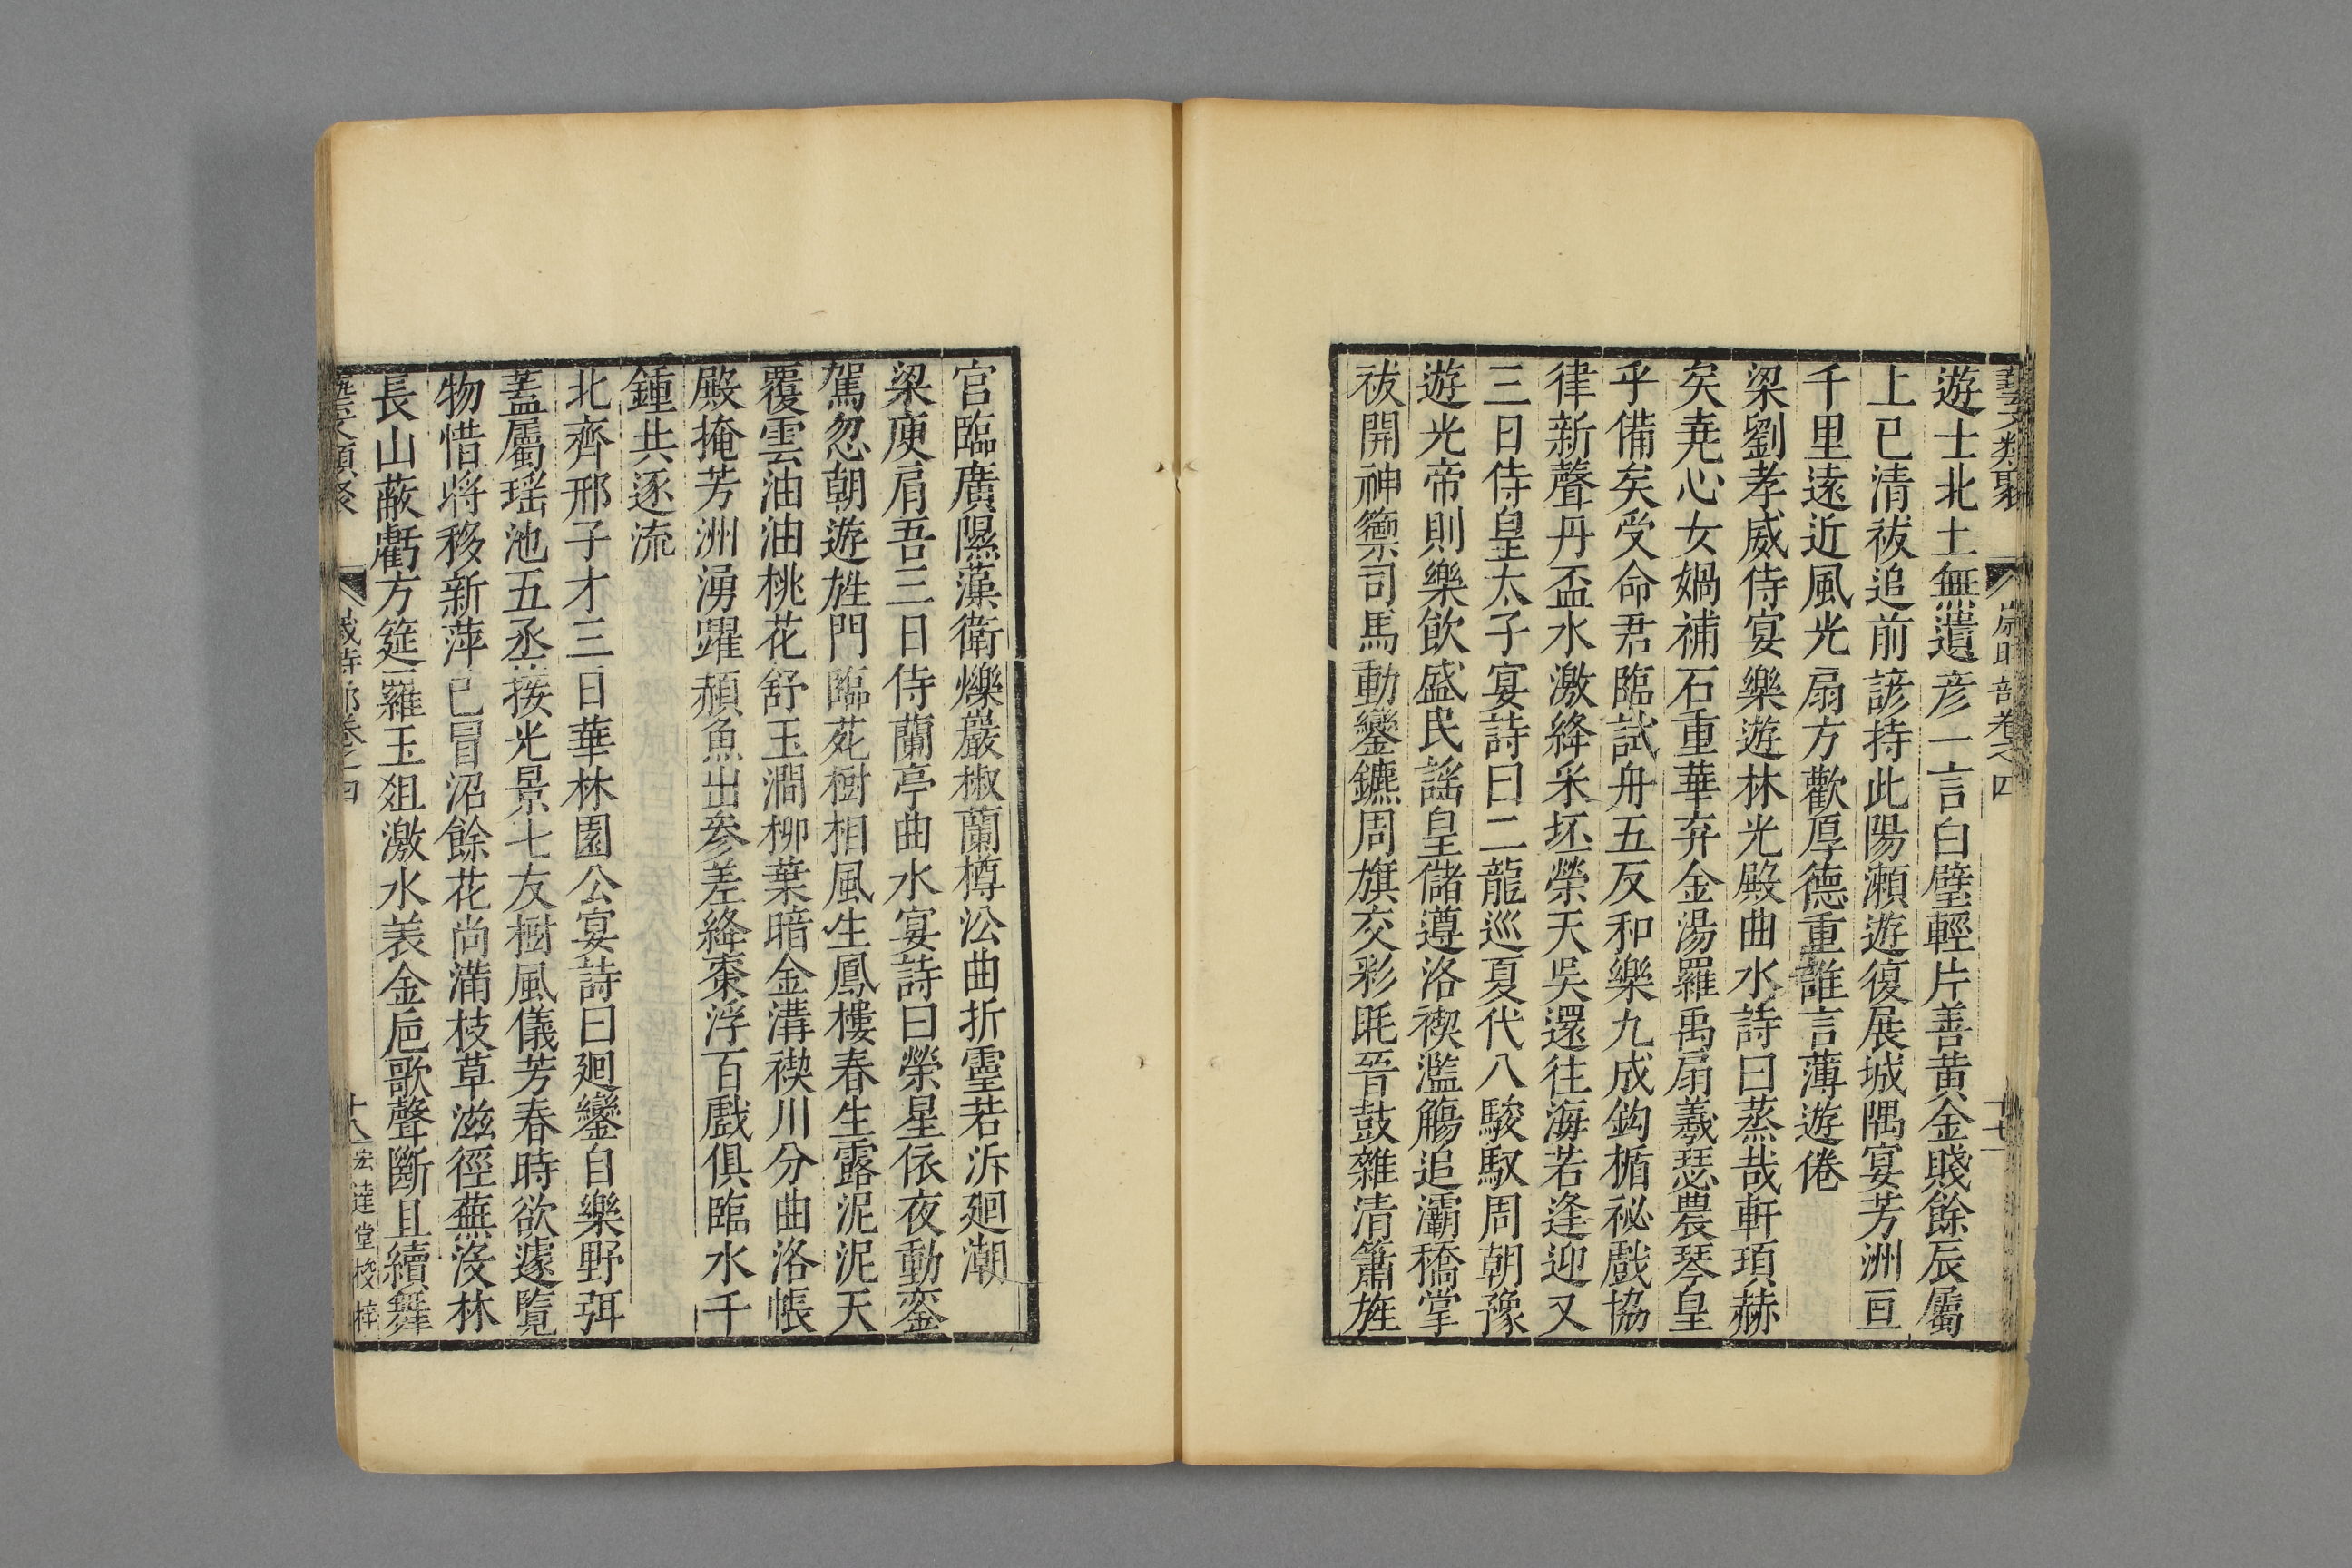 藝文類聚 歲時部卷之四 十七
遊士北土無遺彦一言白璧輕片善黄金賤餘辰屬
上巳清祓追前諺持此陽瀨遊復展城隅宴芳洲亘
千里遠近風光扇方歡厚德重誰言薄遊倦
梁劉孝威侍宴樂遊林光殿曲水詩曰蒸哉軒頊赫
矣堯心女媧補石重華弃金湯羅禹扇羲瑟農琴皇
乎備矣受命君臨試舟五反和樂九成鈎楯祕戲協
律新聲丹盃水激絳采坯縈天吳還往海若逢迎又
三日侍皇太子宴詩曰二龍巡夏代八駿馭周朝豫
遊光帝則樂飲盛民謠皇儲遵洛禊濫觴追灞穚掌
祓開神籞司馬動鑾鑣周旗交彩眊晉鼓雜清簫旌
官臨廣隰藻衛爍巖椒蘭樽㳂曲折靈若泝廻潮
梁庾肩吾三日侍蘭亭曲水宴詩曰榮星依夜動鑾
駕忽朝遊旌門臨苑樹相風生鳳樓春生露泥泥天
覆雲油油桃花舒玉澗柳葉暗金溝禊川分曲洛帳
殿掩芳洲湧躍頳魚出參差絳棗浮百戲俱臨水千
鍾共逐流
北齊邢子才三日華林園公宴詩曰廻鑾自樂野弭
蓋屬瑶池五丞接光景七友樹風儀芳春時欲遽覽
物惜將移新萍已冒沼餘花尚滿枝草滋徑蕪沒林
長山蔽虧方筵羅玉俎激水羕金巵歌聲斷且續舞
藝文類聚 歲時部卷之四 十八 宏達堂校梓